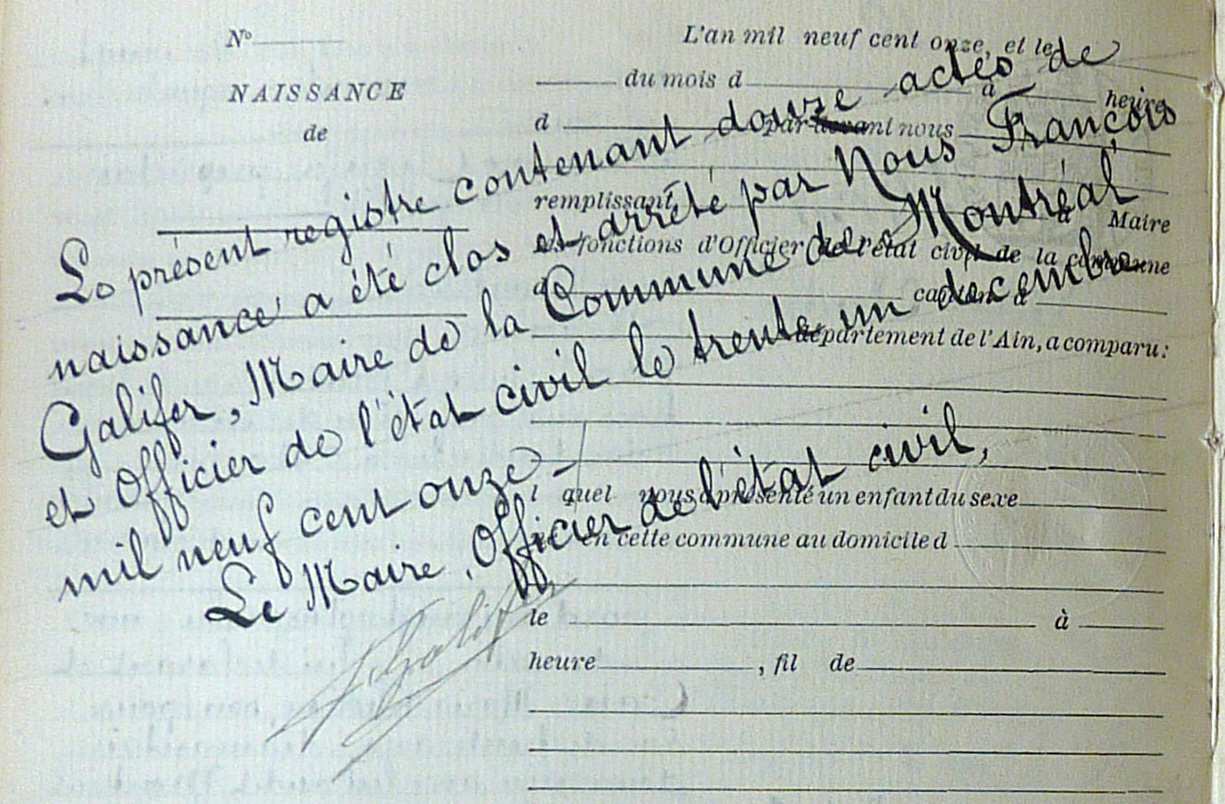 N°
NAISSANCE
de
L'an mil neuf cent onze, et le
du mois d à heure
d par-devant nous
remplissant
les fonctions d'Officier de l'état civil de la commune
à Maire
d canton d
département de l'Ain, a comparu:
l quel nous a présenté un enfant du sexe
né en cette commune au domicile d
le à
heure , fil de
Le présent registre contenant douze actes de
naissance a été clos et arrêté par Nous François
Galifer, Maire de la Commune de Montréal
et Officier de l'état civil le trente un décembre
mil neuf cent onze -
Le Maire, Officier de l'état civil,
F Galifer